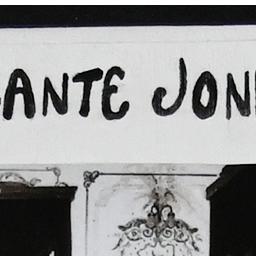 ANTE JON